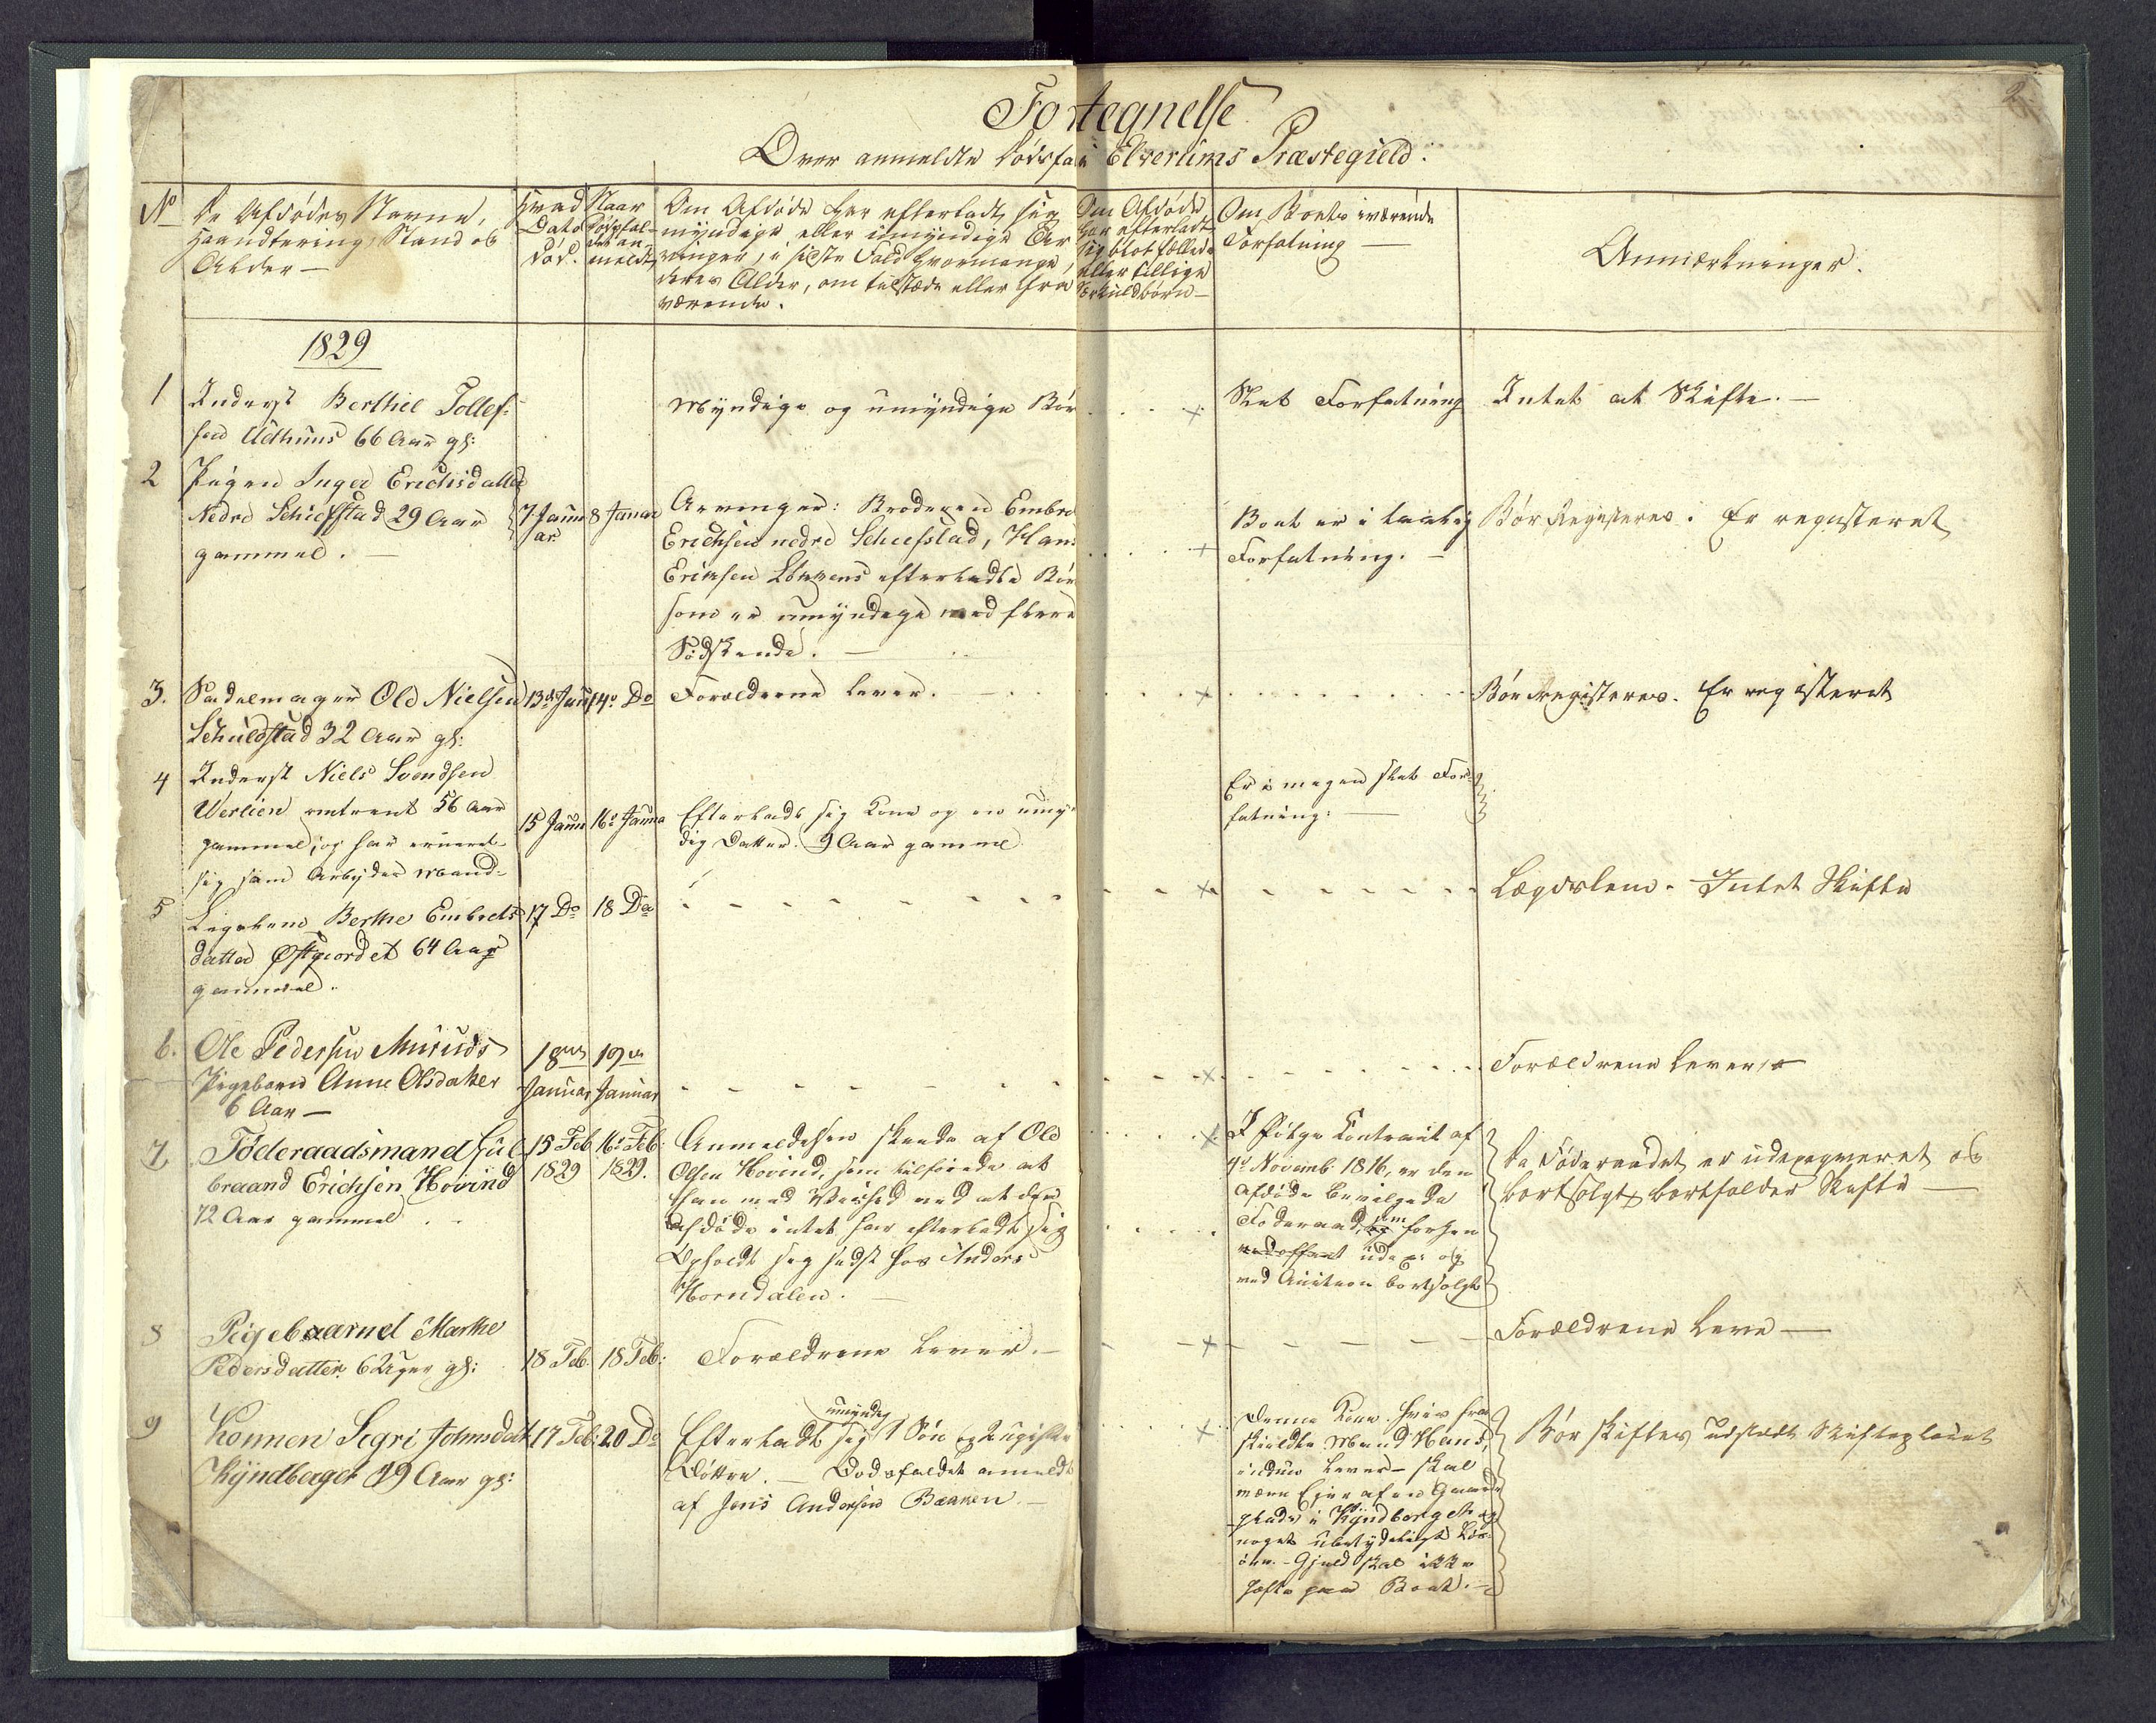 2.
Fortegnelse
Over anmeldte Dødsfa i Elverums Præstegield.
No
De Afdødes Navne,
Haandtering, Stand og
Alder —
Hvad
Dato
død.
Naar
Dødsfal-
det an-
meldt
Om Afdøde har efterladt sig
myndige eller umyndige Ar
vinger, i sidste Fald hvormange,
deres Alder, om tilstæde eller fra
værende.
Om Afdøde
har efterladt
sig blot fælleds
eller tillige
Særkuldbørn —
Om Boets værende
Forfatning —
Anmærkninger.
1829
1
Inderst Berthel Tollef-
sen Udhuus 66 Aar gl:
Myndige og umyndige Bør
Slet Forfatning
Intet at Skifte. —
2
Pigen Inger Erichsdatter
Nedre Schiefstad 29 Aar
gammel. —
7 Janu
ar
8 Januar
Arvinger: Broderen Embre
Erichsen nedre Schiefstad, Hans
Eriksen efterladte Bør
som er umyndige med flere
Sødskende. —
Boet er i
Forfatning. —
Bør Registeres. Er registeret
3.
Sadelmager Ole Nielsen
Schuldstad 32 Aar gl:
13de Janu
14de Do
Forældrene lever. —
Bør Registeres. Er registeret
4
Inderst Niels Svendsen
Werlien omtrent 56 Aar
gammel, og har ernæret
sig som Arbejdes Mand-
15 Janu
16de Janua
Efterladt sig Kone og en umyn
dig Datter 9 Aar gammel
Er i megen slet For-
fatning: —
5
Legdslem Berthe Embrets
datter Østgiordet 64 Aar
gammel.
17 Do
18 Do
Lægdslem. Intet Skifte
6.
Ole Pedersen Muruds
Pigebarn Anne Olsdatter
6 Aar —
18de
Januar
19de
Januar
Forældrene lever
7
Föderaadsmand Gul-
braand Erichsen Hovind
72 Aar gammel
15 Feb
1829
16de Feb:
1829.
Anmeldelsen skeede af Ole
Olsen Hovind, som tilføiede at
Han med Vished ved at den
Afdøde intet har efterladt sig
Opholdt sig sidst hos Anders
Horndalen. —
I Følge Contract af
4de Novemb: 1816, er den
Afdøde bevilgede
Föderaad, som forhen
udpt: og
ved Auction bortsolgt
Da Föderaadet er udpagneret og
bortsolgt, bortfalder Skifte —
8
Pigebaarnet Marthe
Pedersdatter 6 Uger gl:
18 Feb.
18 Feb:
Forældrene lever. —
Forældrene leve —
9
Konnen Segri Johnsdatt
Kyndberget 49 Aar gl:
17 Feb:
20 Do
umyndig
Efterladt sig 1 Søn og 2 ugifte
Døttre. — Dødsfaldet anmeldt
af Jens Andersen Bækken —
Denne Kone hvis fra
skieldte Mand Hans,
endnu lever — skal
være Ejer af en Gaard
plads i Kyndberget og
noget ubetydeligt Løs-
øre. — Gjeld skal ikke
hefte paa Boet. —
Bør skiftes udstædt